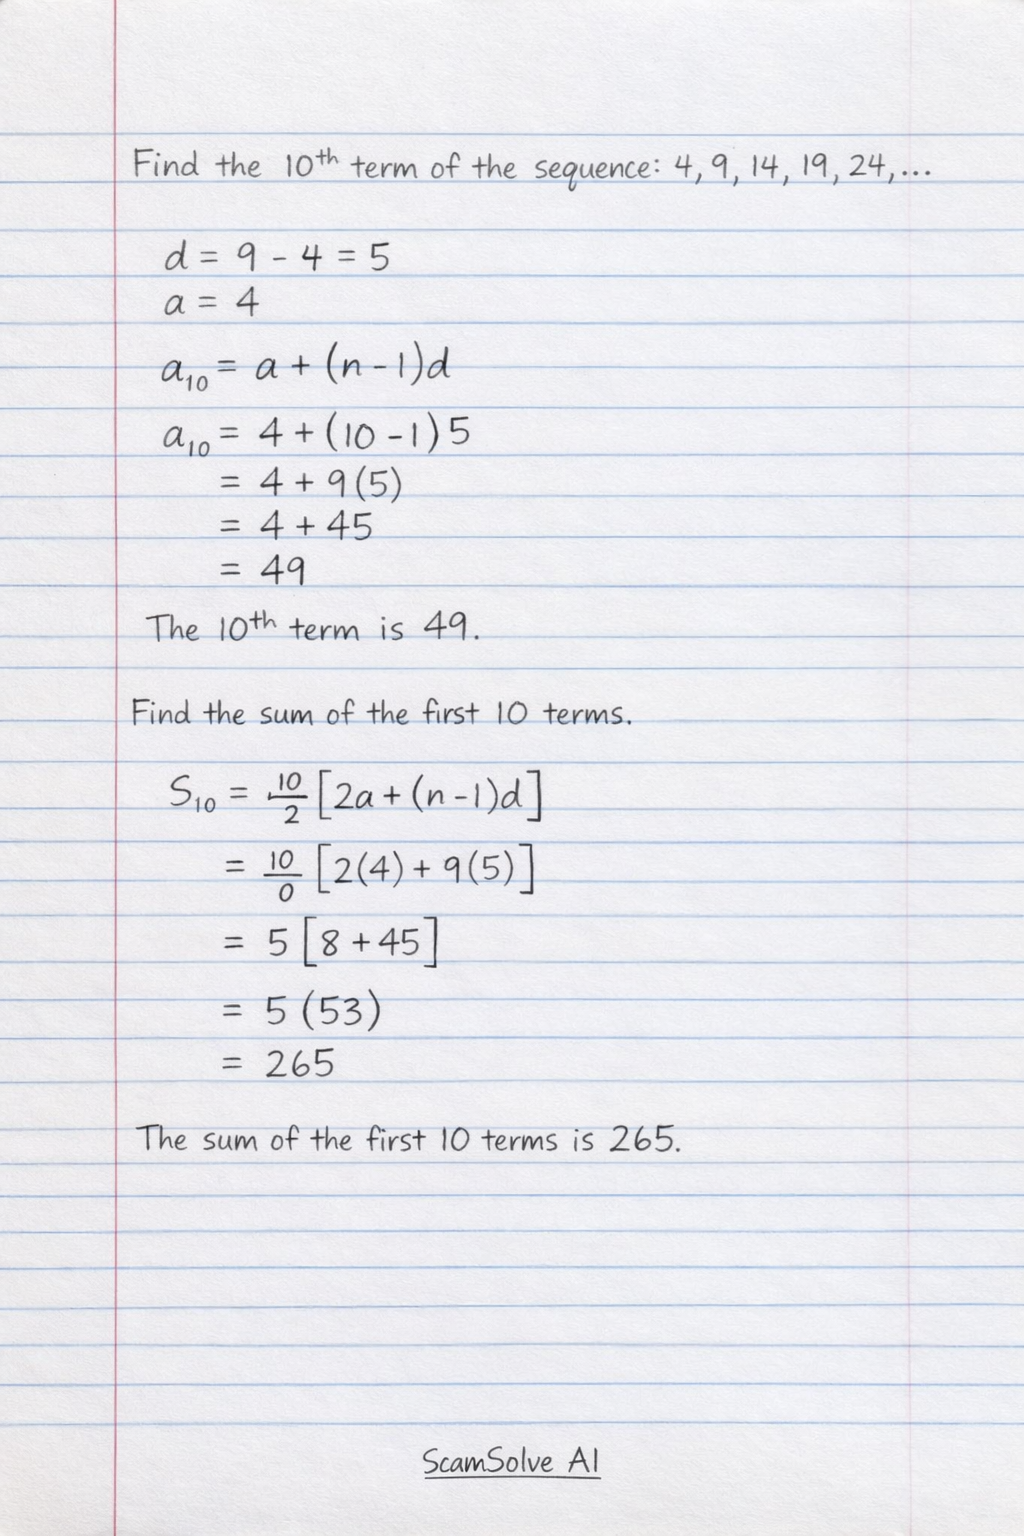 Find the 10th term of the sequence: 4, 9, 14, 19, 24,...
d = 9 - 4 = 5
a = 4
a₁₀ = a + (n - 1)d
a₁₀ = 4 + (10 - 1)5
= 4 + 9(5)
= 4 + 45
= 49
The 10th term is 49.
Find the sum of the first 10 terms.
S₁₀ = 10/2 [2a + (n - 1)d]
= 10/0 [2(4) + 9(5)]
= 5 [8 + 45]
= 5 (53)
= 265
The sum of the first 10 terms is 265.
ScamSolve AI